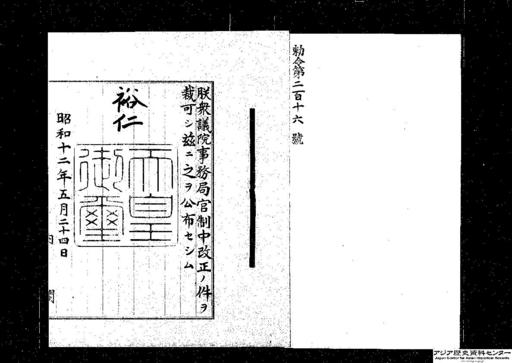 勅令第二百十六號
朕衆議院事務局官制中改正ノ件ヲ
裁可シ茲ニ之ヲ公布セシム
裕仁
天皇
御璽
昭和十二年五月二十四日
内閣
アジア歴史資料センター
Japan Center for Asian Historical Records